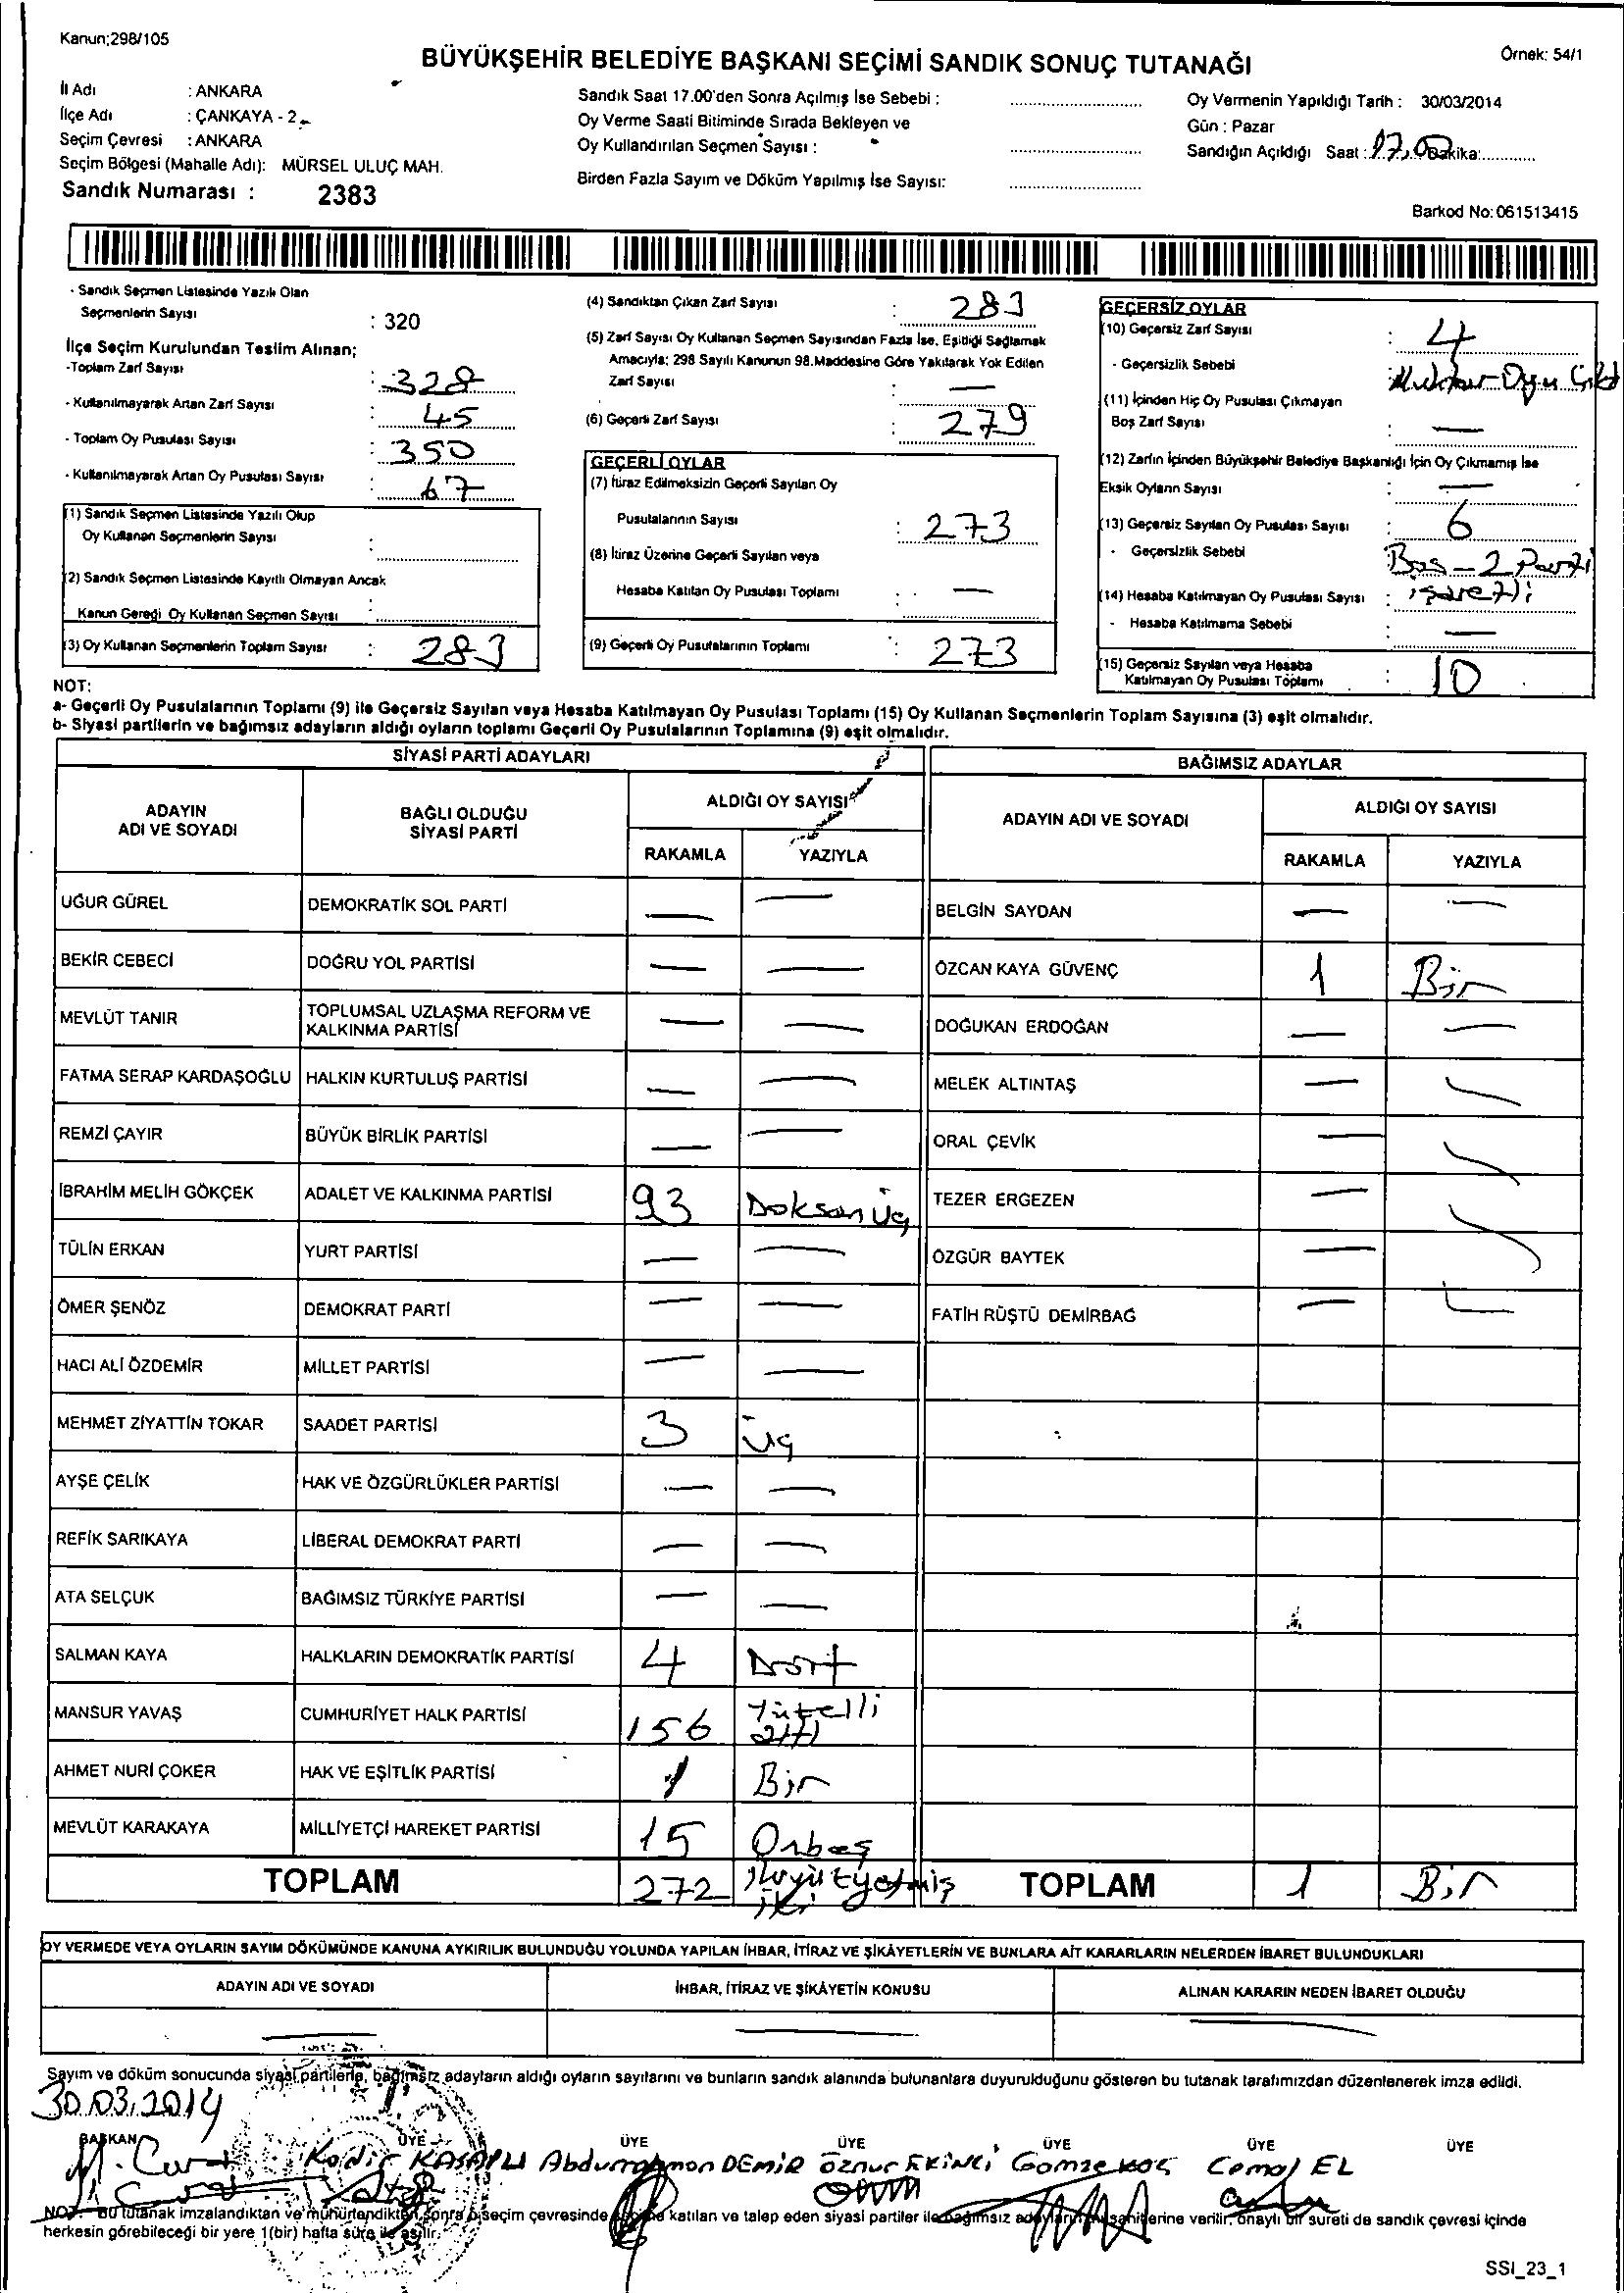 Kanun;298/105
BÜYÜKŞEHİR BELEDİYE BAŞKANI SEÇİMİ SANDIK SONUÇ TUTANAĞI
Örnek: 54/1
İl Adı : ANKARA
İlçe Adı : ÇANKAYA - 2
Seçim Çevresi : ANKARA
Seçim Bölgesi (Mahalle Adı): MÜRSEL ULUÇ MAH.
Sandık Numarası : 2383
Sandık Saat 17.00'den Sonra Açılmış İse Sebebi :
Oy Verme Saati Bitiminde Sırada Bekleyen ve
Oy Kullandırılan Seçmen Sayısı :
Birden Fazla Sayım ve Döküm Yapılmış İse Sayısı:
Oy Vermenin Yapıldığı Tarih : 30/03/2014
Gün : Pazar
Sandığın Açıldığı Saat : 17.00 Dakika:
Barkod No:061513415
- Sandık Seçmen Listesinde Yazılı Olan
Seçmenlerin Sayısı : 320
İlçe Seçim Kurulundan Teslim Alınan;
-Toplam Zarf Sayısı : 328
- Kullanılmayarak Artan Zarf Sayısı : 45
- Toplam Oy Pusulası Sayısı : 350
- Kullanılmayarak Artan Oy Pusulası Sayısı : 67
(1) Sandık Seçmen Listesinde Yazılı Olup
Oy Kullanan Seçmenlerin Sayısı :
(2) Sandık Seçmen Listesinde Kayıtlı Olmayan Ancak
Kanun Gereği Oy Kullanan Seçmen Sayısı :
(3) Oy Kullanan Seçmenlerin Toplam Sayısı : 283
(4) Sandıktan Çıkan Zarf Sayısı : 283
(5) Zarf Sayısı Oy Kullanan Seçmen Sayısından Fazla İse, Eşitliği Sağlamak
Amacıyla; 298 Sayılı Kanunun 98.Maddesine Göre Yakılarak Yok Edilen
Zarf Sayısı : —
(6) Geçerli Zarf Sayısı : 279
GEÇERLİ OYLAR
(7) İtiraz Edilmeksizin Geçerli Sayılan Oy
Pusulalarının Sayısı : 273
(8) İtiraz Üzerine Geçerli Sayılan veya
Hesaba Katılan Oy Pusulası Toplamı : —
(9) Geçerli Oy Pusulalarının Toplamı : 273
GEÇERSİZ OYLAR
(10) Geçersiz Zarf Sayısı : 4
- Geçersizlik Sebebi : Muhtar Oyu Çıktı
(11) İçinden Hiç Oy Pusulası Çıkmayan
Boş Zarf Sayısı : —
(12) Zarfın İçinden Büyükşehir Belediye Başkanlığı İçin Oy Çıkmamış İse
Eksik Oyların Sayısı : —
(13) Geçersiz Sayılan Oy Pusulası Sayısı : 6
- Geçersizlik Sebebi Boş - 2 Parti
işaretli
(14) Hesaba Katılmayan Oy Pusulası Sayısı :
- Hesaba Katılmama Sebebi : —
(15) Geçersiz Sayılan veya Hesaba
Katılmayan Oy Pusulası Toplamı : 10
NOT:
a- Geçerli Oy Pusulalarının Toplamı (9) ile Geçersiz Sayılan veya Hesaba Katılmayan Oy Pusulası Toplamı (15) Oy Kullanan Seçmenlerin Toplam Sayısına (3) eşit olmalıdır.
b- Siyasi partilerin ve bağımsız adayların aldığı oyların toplamı Geçerli Oy Pusulalarının Toplamına (9) eşit olmalıdır.
SİYASİ PARTİ ADAYLARI
ADAYIN ADI VE SOYADI
BAĞLI OLDUĞU SİYASİ PARTİ
ALDIĞI OY SAYISI
RAKAMLA YAZIYLA
UĞUR GÜREL DEMOKRATİK SOL PARTİ — —
BEKİR CEBECİ DOĞRU YOL PARTİSİ — —
MEVLÜT TANIR TOPLUMSAL UZLAŞMA REFORM VE KALKINMA PARTİSİ — —
FATMA SERAP KARDAŞOĞLU HALKIN KURTULUŞ PARTİSİ — —
REMZİ ÇAYIR BÜYÜK BİRLİK PARTİSİ — —
İBRAHİM MELİH GÖKÇEK ADALET VE KALKINMA PARTİSİ 93 Doksan üç
TÜLİN ERKAN YURT PARTİSİ — —
ÖMER ŞENÖZ DEMOKRAT PARTİ — —
HACI ALİ ÖZDEMİR MİLLET PARTİSİ — —
MEHMET ZİYATTİN TOKAR SAADET PARTİSİ 3 üç
AYŞE ÇELİK HAK VE ÖZGÜRLÜKLER PARTİSİ — —
REFİK SARIKAYA LİBERAL DEMOKRAT PARTİ — —
ATA SELÇUK BAĞIMSIZ TÜRKİYE PARTİSİ — —
SALMAN KAYA HALKLARIN DEMOKRATİK PARTİSİ 4 Dört
MANSUR YAVAŞ CUMHURİYET HALK PARTİSİ 156 Yüzelli altı
AHMET NURİ ÇOKER HAK VE EŞİTLİK PARTİSİ 1 Bir
MEVLÜT KARAKAYA MİLLİYETÇİ HAREKET PARTİSİ 15 Onbeş
TOPLAM 272 ikiyüzyetmiş iki
BAĞIMSIZ ADAYLAR
ADAYIN ADI VE SOYADI
ALDIĞI OY SAYISI
RAKAMLA YAZIYLA
BELGİN SAYDAN — —
ÖZCAN KAYA GÜVENÇ 1 Bir
DOĞUKAN ERDOĞAN — —
MELEK ALTINTAŞ —
ORAL ÇEVİK —
TEZER ERGEZEN —
ÖZGÜR BAYTEK —
FATİH RÜŞTÜ DEMİRBAĞ —
TOPLAM 1 Bir
OY VERMEDE VEYA OYLARIN SAYIM DÖKÜMÜNDE KANUNA AYKIRILIK BULUNDUĞU YOLUNDA YAPILAN İHBAR, İTİRAZ VE ŞİKÂYETLERİN VE BUNLARA AİT KARARLARIN NELERDEN İBARET BULUNDUKLARI
ADAYIN ADI VE SOYADI İHBAR, İTİRAZ VE ŞİKÂYETİN KONUSU ALINAN KARARIN NEDEN İBARET OLDUĞU
— — —
Sayım ve döküm sonucunda siyasi partilerle, bağımsız adayların aldığı oyların sayılarını ve bunların sandık alanında bulunanlara duyurulduğunu gösteren bu tutanak tarafımızdan düzenlenerek imza edildi.
30.03.2014
BAŞKAN ÜYE ÜYE ÜYE ÜYE ÜYE ÜYE
Kadir KASAPLI Abdurrahman DEMİR öznur EKİNCİ Gamze KOÇ Cemal EL
NOT: Bu tutanak imzalandıktan ve mühürlendikten sonra seçim çevresinde katılan ve talep eden siyasi partiler ile bağımsız verilir, onaylı bir sureti de sandık çevresi içinde
herkesin görebileceği bir yere 1(bir) hafta süre ile asılır.
SSI_23_1